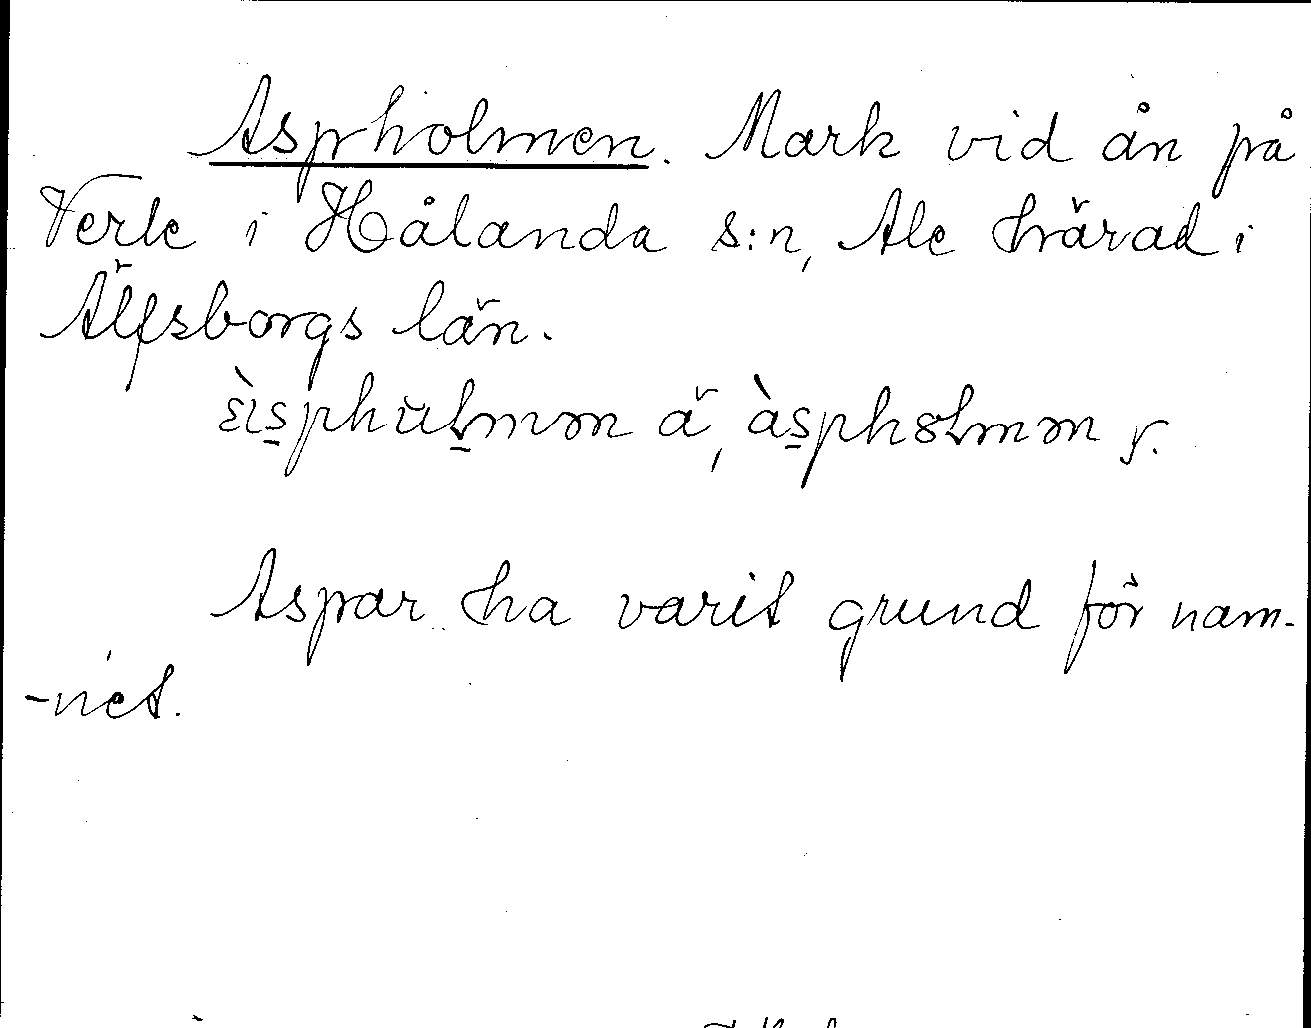 Aspholmen. Mark vid ån på
Verle i Hålanda s:n, Ale härad i
Älfsborgs län.
ä, y.
Aspar ha varit grund för nam-
-net.